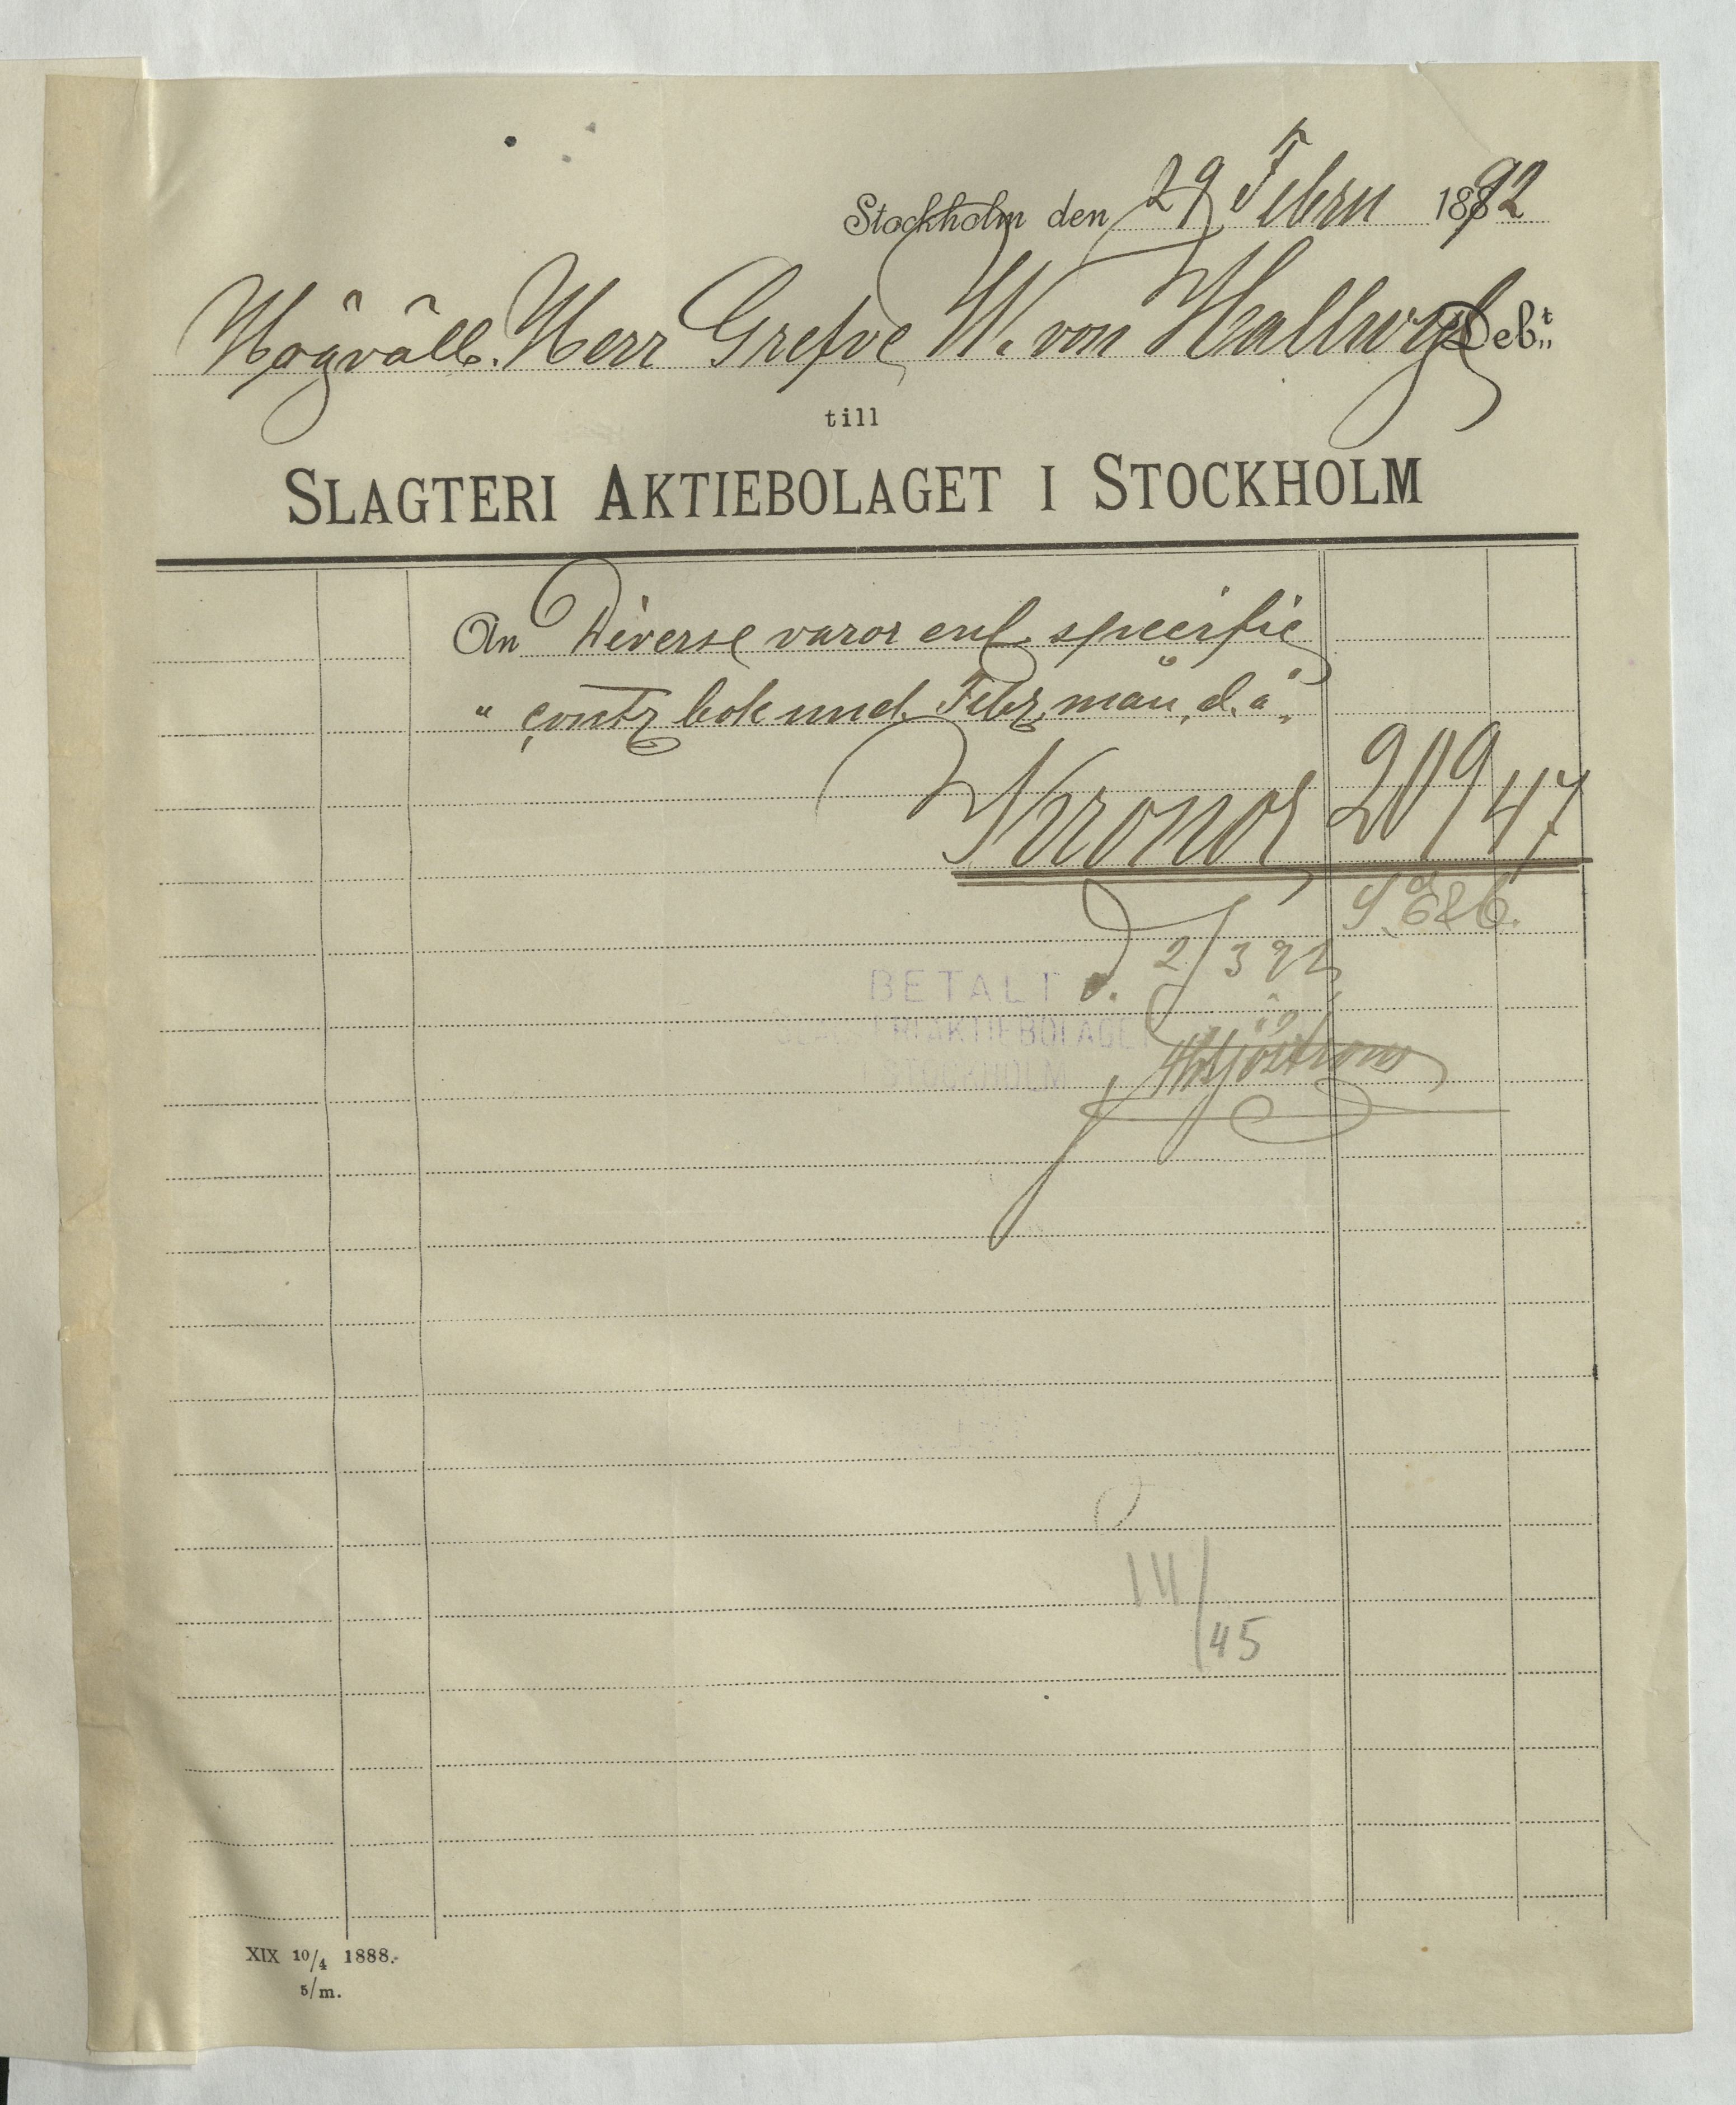 Stockholm den 29 Febru 1892
Högvälb. Herr Grefve W. von Hallwyl Debt
till
SLAGTERI AKTIEBOLAGET I STOCKHOLM
An Diverse varor enl. specific
" contr bok und. Febr. mån. d. å.
Kronor 209 47
S. E. & O.
d. 2/3 92
BETALT
SLAGTERIAKTIEBOLAGET
I STOCKHOLM
Sjöström
111/45
XIX 10/4 1888.
5/m.